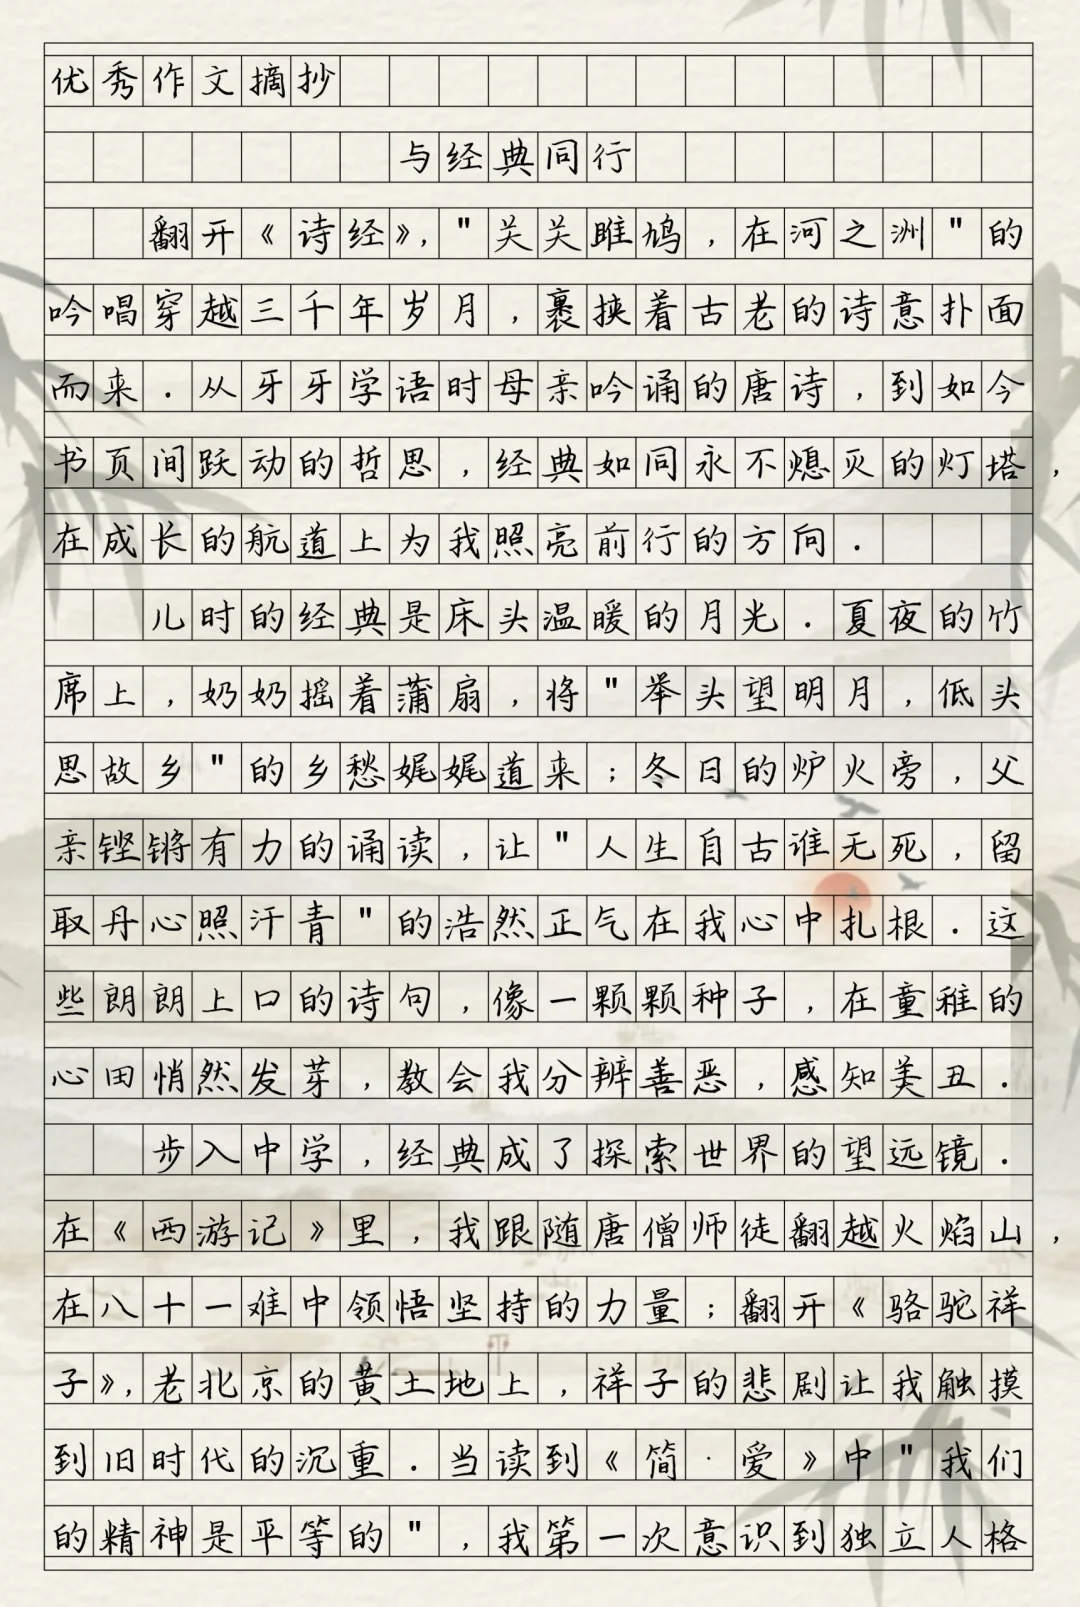 优秀作文摘抄
与经典同行
翻开《诗经》，"关关雎鸠，在河之洲"的
吟唱穿越三千年岁月，裹挟着古老的诗意扑面
而来．从牙牙学语时母亲吟诵的唐诗，到如今
书页间跃动的哲思，经典如同永不熄灭的灯塔，
在成长的航道上为我照亮前行的方向．
儿时的经典是床头温暖的月光．夏夜的竹
席上，奶奶摇着蒲扇，将"举头望明月，低头
思故乡"的乡愁娓娓道来；冬日的炉火旁，父
亲铿锵有力的诵读，让"人生自古谁无死，留
取丹心照汗青"的浩然正气在我心中扎根．这
些朗朗上口的诗句，像一颗颗种子，在童稚的
心田悄然发芽，教会我分辨善恶，感知美丑．
步入中学，经典成了探索世界的望远镜．
在《西游记》里，我跟随唐僧师徒翻越火焰山，
在八十一难中领悟坚持的力量；翻开《骆驼祥
子》，老北京的黄土地上，祥子的悲剧让我触摸
到旧时代的沉重．当读到《简·爱》中"我们
的精神是平等的"，我第一次意识到独立人格